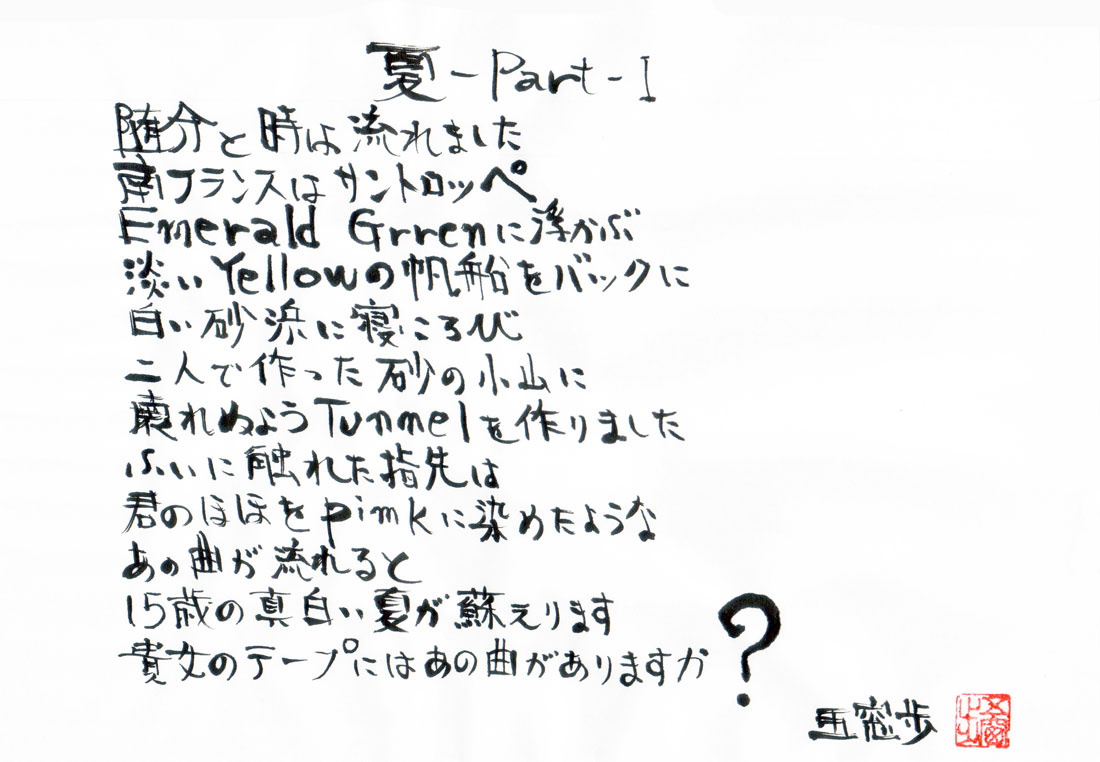 夏-Part-I
随分と時は流れました
南フランスはサントロッペ
Emerald Grrenに浮かぶ
淡いYellowの帆船をバックに
白い砂浜に寝ころび
二人で作った砂の小山に
壊れぬようTunmelを作りました
ふいに触れた指先は
君のほほをpimkに染めたような
あの曲が流れると
15歳の真白い夏が蘇えります
貴女のテープにはあの曲がありますか?
窓歩